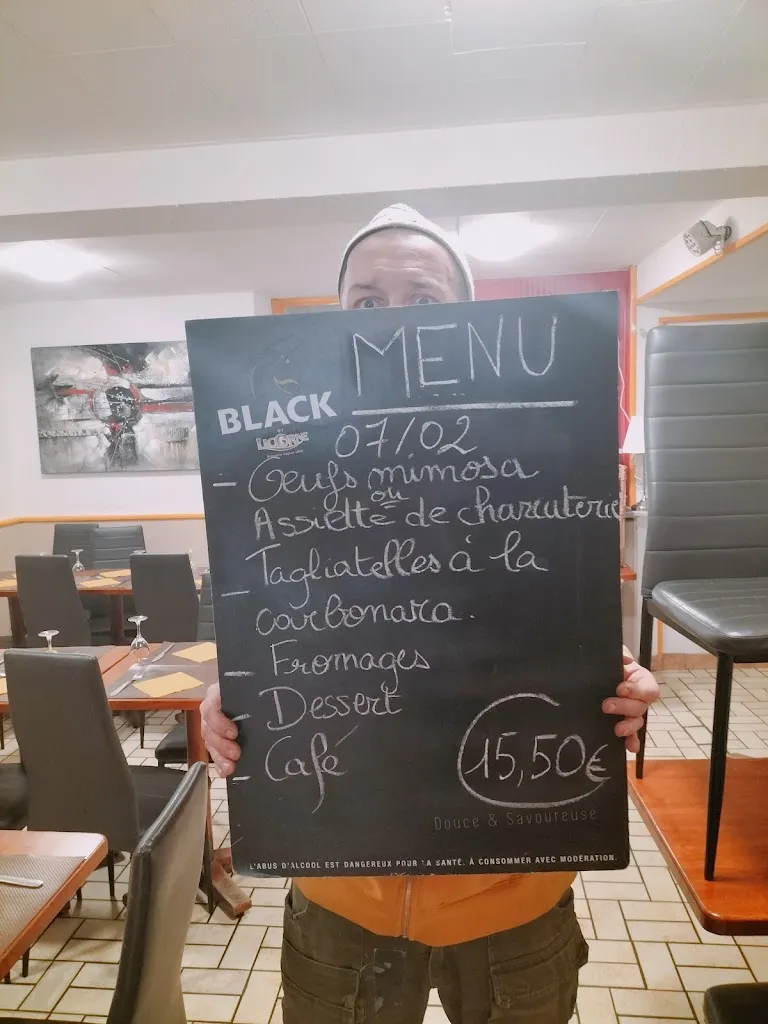 MENU
BLACK
LICORNE
07/02
- Oeufs mimosa
ou
Assiette de charcuterie
- Tagliatelles à la
carbonara.
- Fromages
- Dessert
- Café
15,50€
Douce & Savoureuse
L'ABUS D'ALCOOL EST DANGEREUX POUR LA SANTÉ. À CONSOMMER AVEC MODÉRATION.